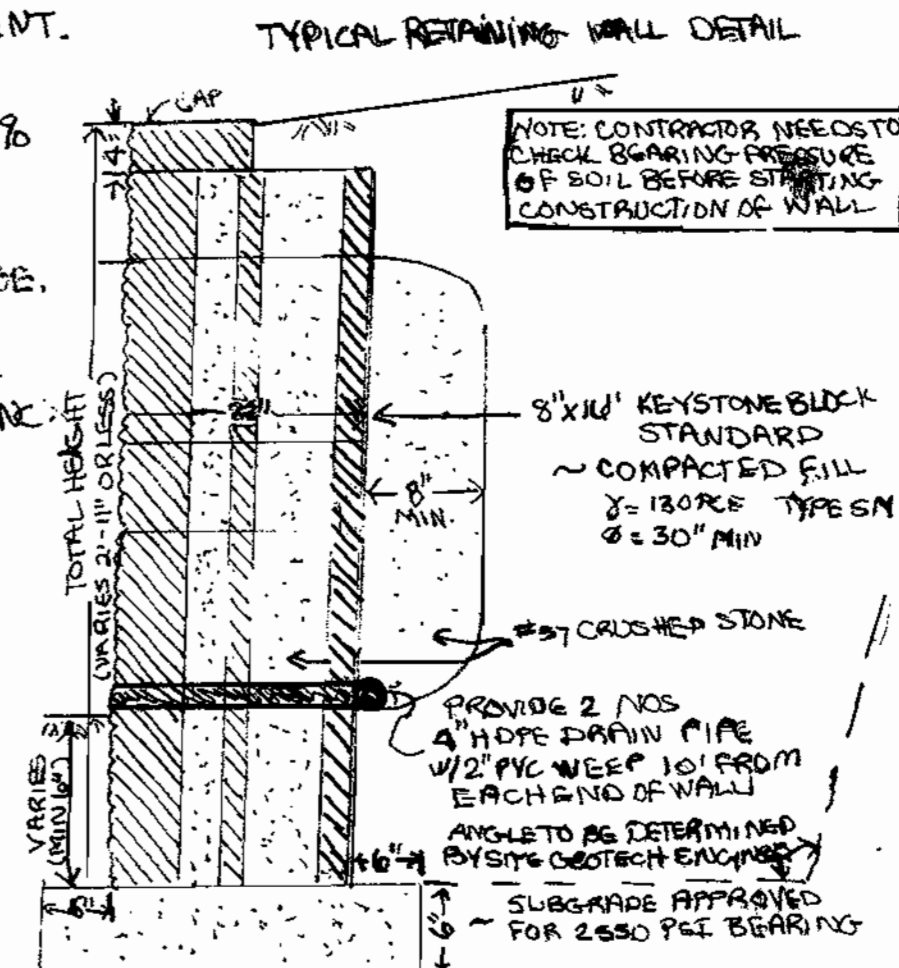 NT.
TYPICAL RETAINING WALL DETAIL
%
CAP
4"
NOTE: CONTRACTOR NEEDS TO
CHECK BEARING PRESSURE
OF SOIL BEFORE STARTING
CONSTRUCTION OF WALL
GE.
NC
TOTAL HEIGHT
(VARIES 2'-11" OR LESS)
8"x16" KEYSTONE BLOCK
STANDARD
~ COMPACTED FILL
γ = 130 PCF TYPE SM
Ø = 30" MIN
8"
MIN.
#57 CRUSHED STONE
PROVIDE 2 NOS
4" HDPE DRAIN PIPE
W/2" PVC WEEP 10' FROM
EACH END OF WALL
VARIES
(MIN 6")
ANGLE TO BE DETERMINED
BY SITE GEOTECH ENGINEER
6"
6"
~ SUBGRADE APPROVED
FOR 2550 PSI BEARING